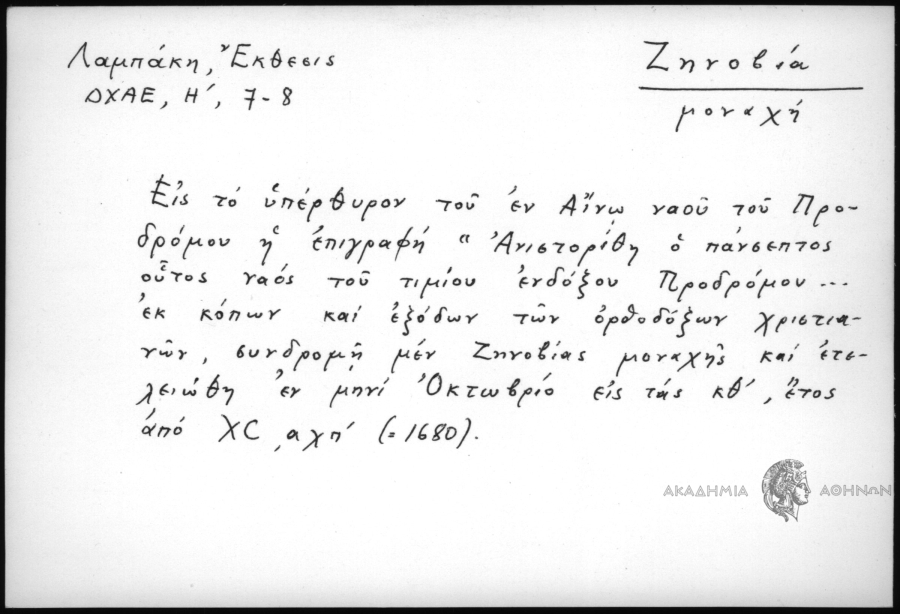 Λαμπάκη, Ἔκθεσις
ΔΧΑΕ, Η΄, 7-8
Ζηνοβία
μοναχή
Εἰς τό ὑπέρθυρον τοῦ ἐν Αἴνῳ ναοῦ τοῦ Προ-
δρόμου ἡ ἐπιγραφή "Ἀνιστορίθη ὁ πάνσεπτος
οὗτος ναός τοῦ τιμίου ἐνδόξου Προδρόμου...
ἐκ κόπων καί ἐξόδων τῶν ὀρθοδόξων χριστια-
νῶν, συνδρομῇ μέν Ζηνοβίας μοναχῆς καί ἐτε-
λειώθη ἐν μηνί Ὀκτωβρίο εἰς τάς κθ΄, ἔτος
ἀπό ΧC ͵αχπ΄ (=1680).
ΑΚΑΔΗΜΙΑ ΑΘΗΝΩΝ